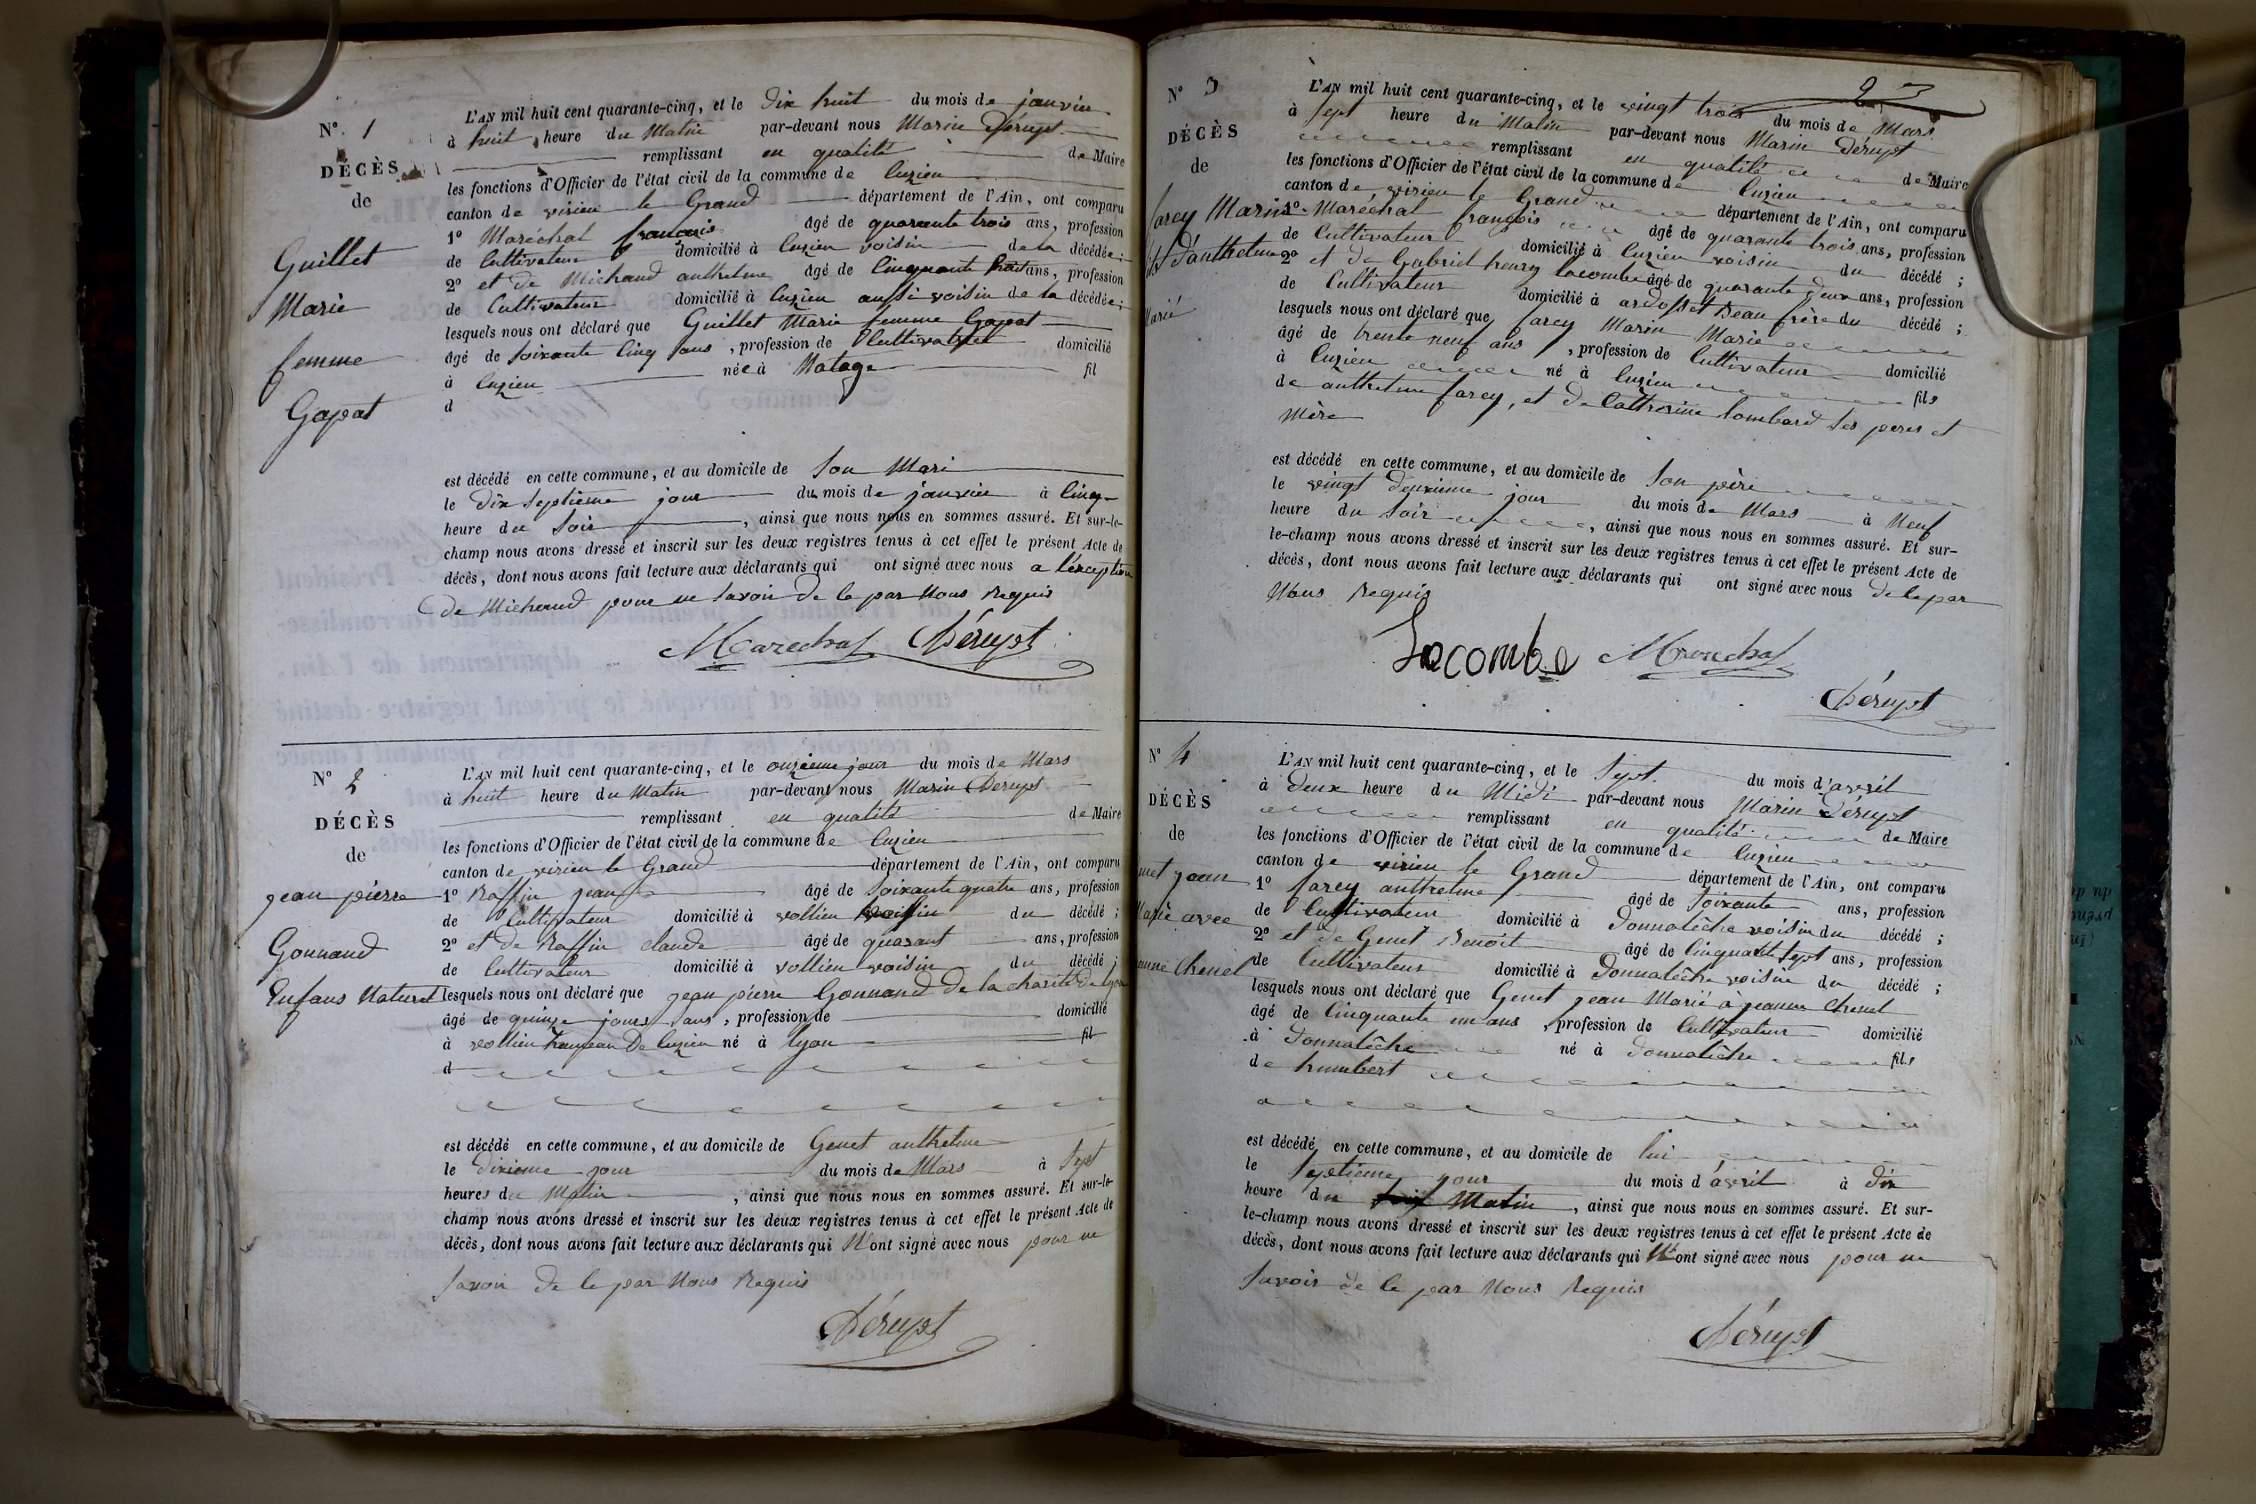 N° 1
DÉCÈS
de
Guillet
Marie
femme
Gojoat
L'AN mil huit cent quarante-cinq, et le dix huit du mois de janvier
à huit heure du Matin par-devant nous Marin Déruyst
remplissant en qualité de Maire
les fonctions d'Officier de l'état civil de la commune de Cuzieu
canton de virieu le Grand département de l'Ain, ont comparu
1° Maréchal françois âgé de quarante trois ans, profession
de Cultivateur domicilié à Cuzieu voisin de la décédée;
2° et de Michaud anthelme âgé de Cinquante huit ans, profession
de Cultivateur domicilié à Cuzieu aussi voisin de la décédée;
lesquels nous ont déclaré que Guillet Marie femme Gojoat
âgé de Soixante Cinq ans, profession de Cultivatrice domicilié
à Cuzieu née à Natage fil
d
est décédé en cette commune, et au domicile de Son Mari
le Dix Septième jour du mois de janvier à Cinq
heure du Soir, ainsi que nous nous en sommes assuré. Et sur-le-
champ nous avons dressé et inscrit sur les deux registres tenus à cet effet le présent Acte de
décès, dont nous avons fait lecture aux déclarants qui ont signé avec nous a l'exception
de Michaud pour ne Savoir De le par Nous Requis
Marechal Déruyst
N° 2
DÉCÈS
de
jean pierre
Gonnand
Enfans Naturel
L'AN mil huit cent quarante-cinq, et le onzieme jour du mois de Mars
à huit heure du Matin par-devant nous Marin Deruyst
remplissant en qualité de Maire
les fonctions d'Officier de l'état civil de la commune de Cuzieu
canton de virieu le Grand département de l'Ain, ont comparu
1° Raffin jean âgé de Soixante quatre ans, profession
de Cultivateur domicilié à vollien voisin du décédé;
2° et de Raffin claude âgé de quarant ans, profession
de Cultivateur domicilié à vollien voisin du décédé;
lesquels nous ont déclaré que jean pierre Gonnand de la charité de Lyon
âgé de quinze jours ans, profession de domicilié
à vollien hameau De Cuzieu né à Lyon fil
d
est décédé en cette commune, et au domicile de Genet anthelme
le Dixieme jour du mois de Mars à Sept
heures du Matin, ainsi que nous nous en sommes assuré. Et sur-le-
champ nous avons dressé et inscrit sur les deux registres tenus à cet effet le présent Acte de
décès, dont nous avons fait lecture aux déclarants qui N'ont signé avec nous pour ne
Savoir De le par Nous Requis
Déruyst
23
N° 3
DÉCÈS
de
farcy Marin
fils d'anthelme
Marié
L'AN mil huit cent quarante-cinq, et le vingt trois du mois de Mars
à Sept heure du Matin par-devant nous Marin Déruyst
remplissant en qualité de Maire
les fonctions d'Officier de l'état civil de la commune de Cuzieu
canton de virieu le Grand département de l'Ain, ont comparu
1° Maréchal françois âgé de quarante trois ans, profession
de Cultivateur domicilié à Cuzieu voisin du décédé;
2° et de Gabriel henry Lacombe âgé de quarante deux ans, profession
de Cultivateur domicilié à ardosset Beau frère du décédé;
lesquels nous ont déclaré que farcy Marin Marié
âgé de trente neuf ans, profession de Cultivateur domicilié
à Cuzieu né à Cuzieu fils
de anthelme farcy, et De Catherine Lombard Ses peres et
Mère
est décédé en cette commune, et au domicile de Son père
le vingt deuxieme jour du mois de Mars à Neuf
heure du Soir, ainsi que nous nous en sommes assuré. Et sur-
le-champ nous avons dressé et inscrit sur les deux registres tenus à cet effet le présent Acte de
décès, dont nous avons fait lecture aux déclarants qui ont signé avec nous de le par
Nous Requis
Lacombe Marechal
Déruyst
N° 4
DÉCÈS
de
jean
Marié avec
Chenel
L'AN mil huit cent quarante-cinq, et le Sept du mois d'avril
à Deux heure du Midi par-devant nous Marin Déruyst
remplissant en qualité de Maire
les fonctions d'Officier de l'état civil de la commune de Cuzieu
canton de virieu le Grand département de l'Ain, ont comparu
1° farcy anthelme âgé de Soixante ans, profession
de Cultivateur domicilié à Donnalêche voisin du décédé;
2° et de Genet Benoit âgé de Cinquante Sept ans, profession
de Cultivateur domicilié à Donnalêche voisin du décédé;
lesquels nous ont déclaré que Genet jean Marié a jeanne Chenel
âgé de Cinquante un ans, profession de Cultivateur domicilié
à Donnalêche né à Donnalêche fils
de humbert
est décédé en cette commune, et au domicile de lui
le Septieme jour du mois d'avril à Dix
heure du Matin, ainsi que nous nous en sommes assuré. Et sur-
le-champ nous avons dressé et inscrit sur les deux registres tenus à cet effet le présent Acte de
décès, dont nous avons fait lecture aux déclarants qui N'ont signé avec nous pour ne
Savoir de le par Nous Requis
Déruyst